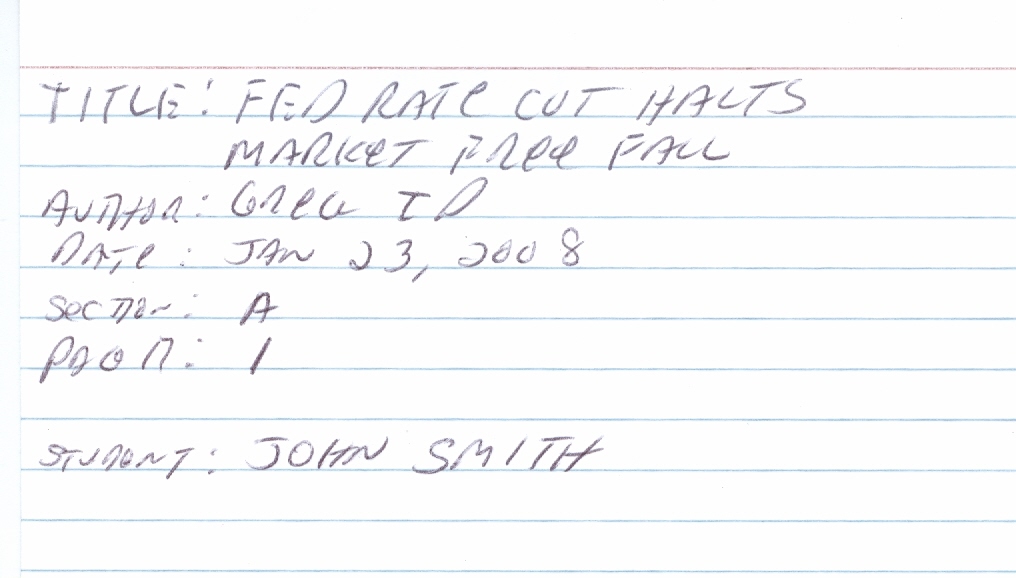 TITLE: FED RATE CUT HALTS
MARKET FREE FALL
AUTHOR: GREG IP
DATE: JAN 23, 2008
SECTION: A
PAGE #: 1
STUDENT: JOHN SMITH